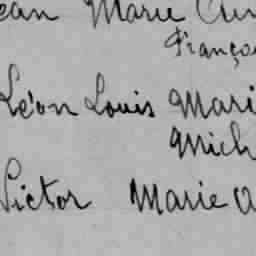 ean Marie
Franço
Léon Louis Mari
Mich
Victor Marie A